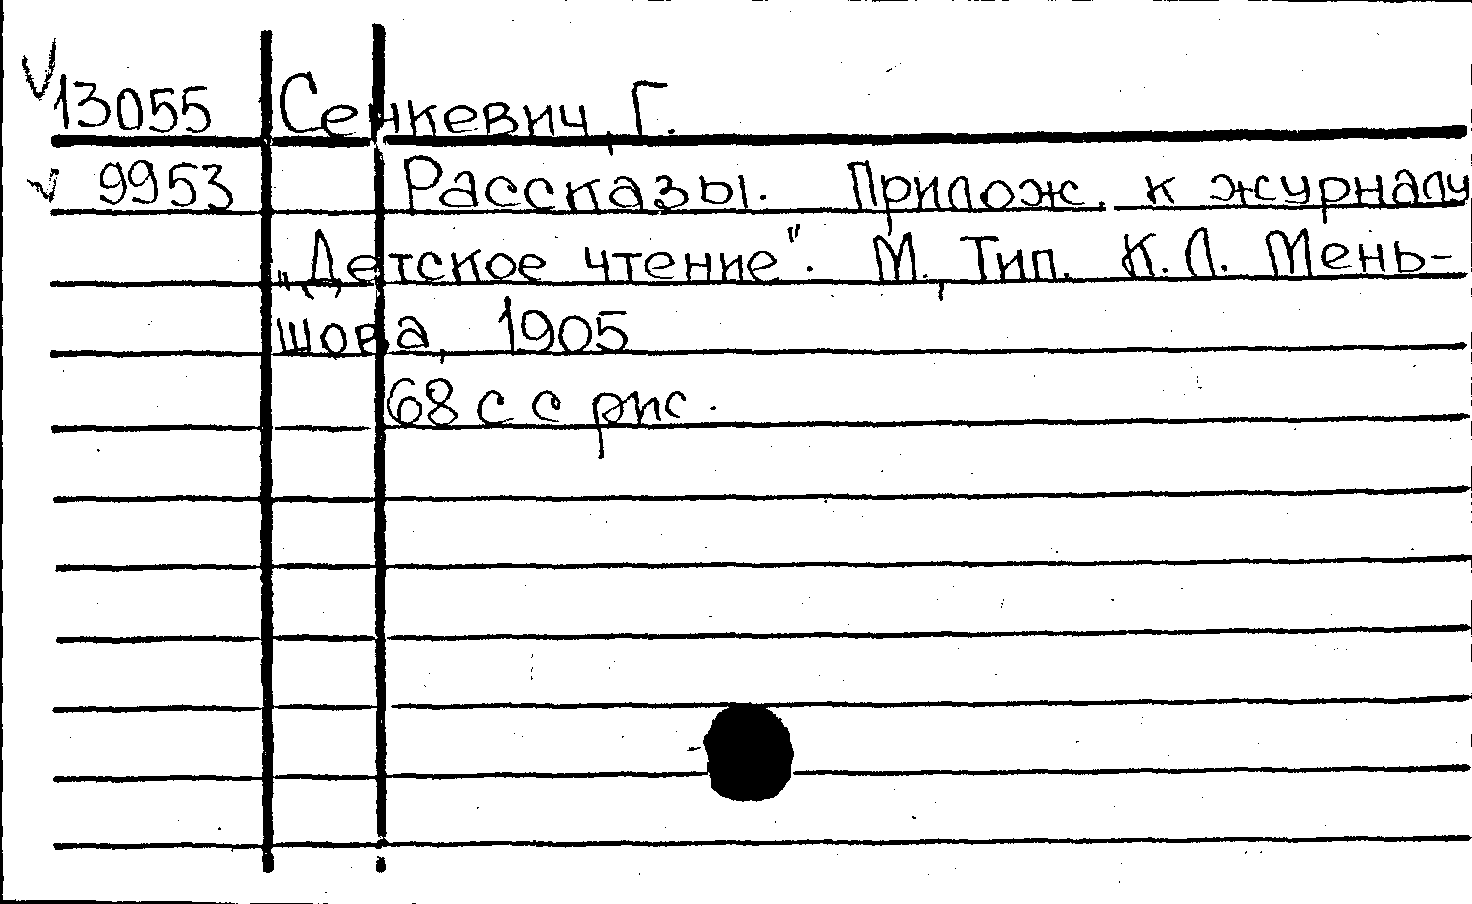 13055 Сенкевич, Г.
9953 Рассказы. Прилож. к журналу
„Детское чтение". М., Тип. К.Л. Мень-
шова, 1905
68 с с рис.